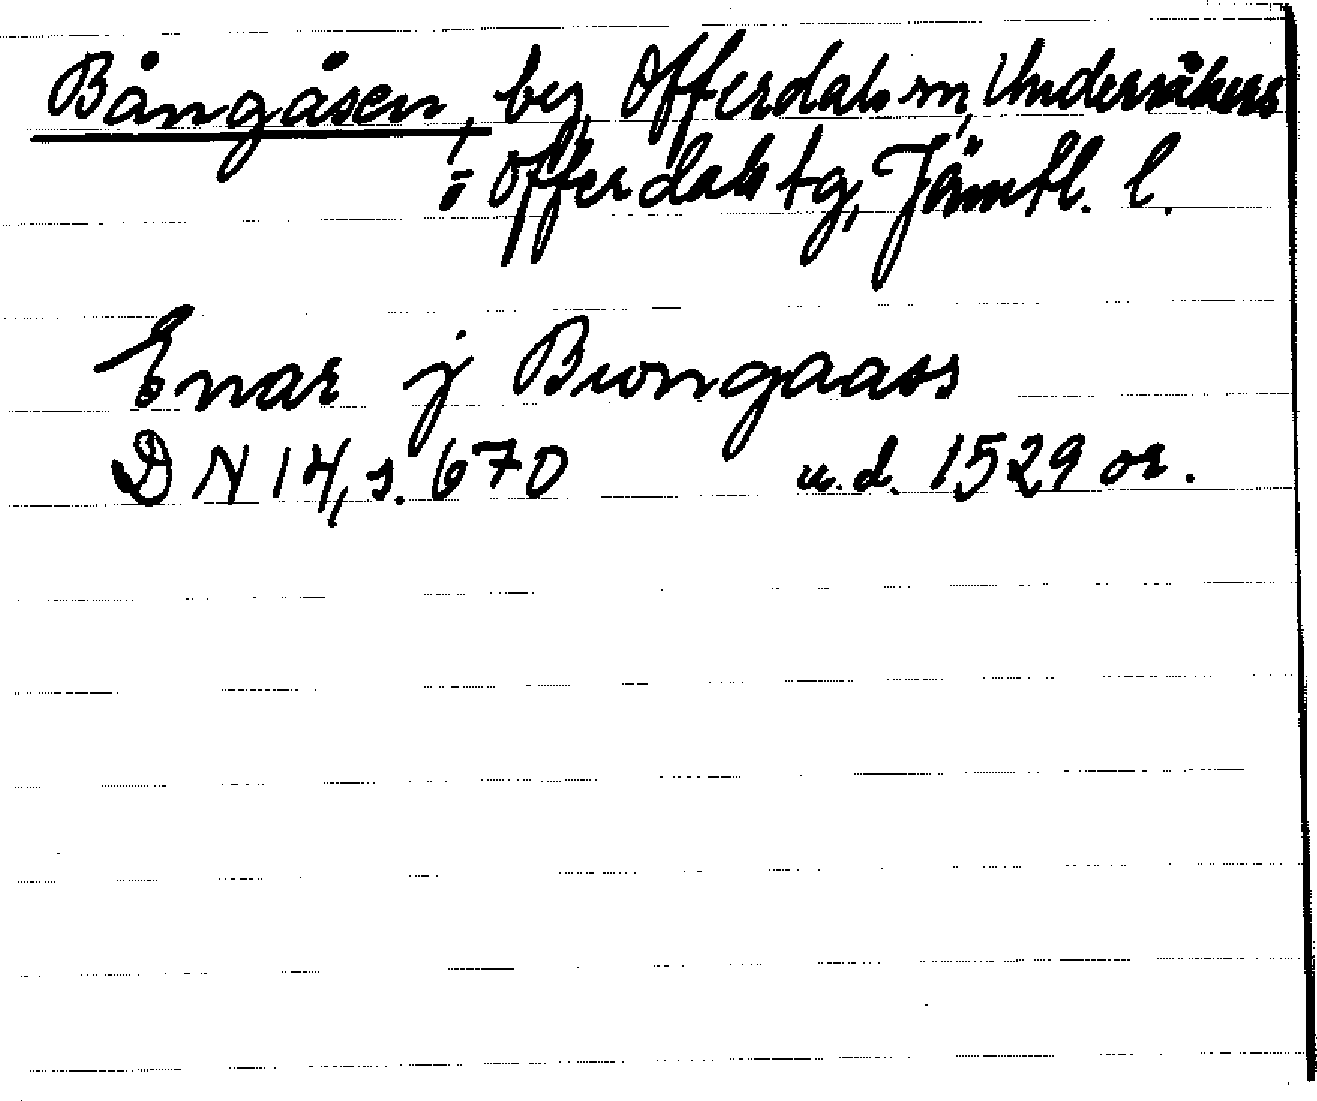 Bångåsen, by, Offerdals sn, Undersåkers
o Offerdals tg, Jämtl. l.
Enar j Brongaass
DN 14, s. 670 u.d. 1529 or.